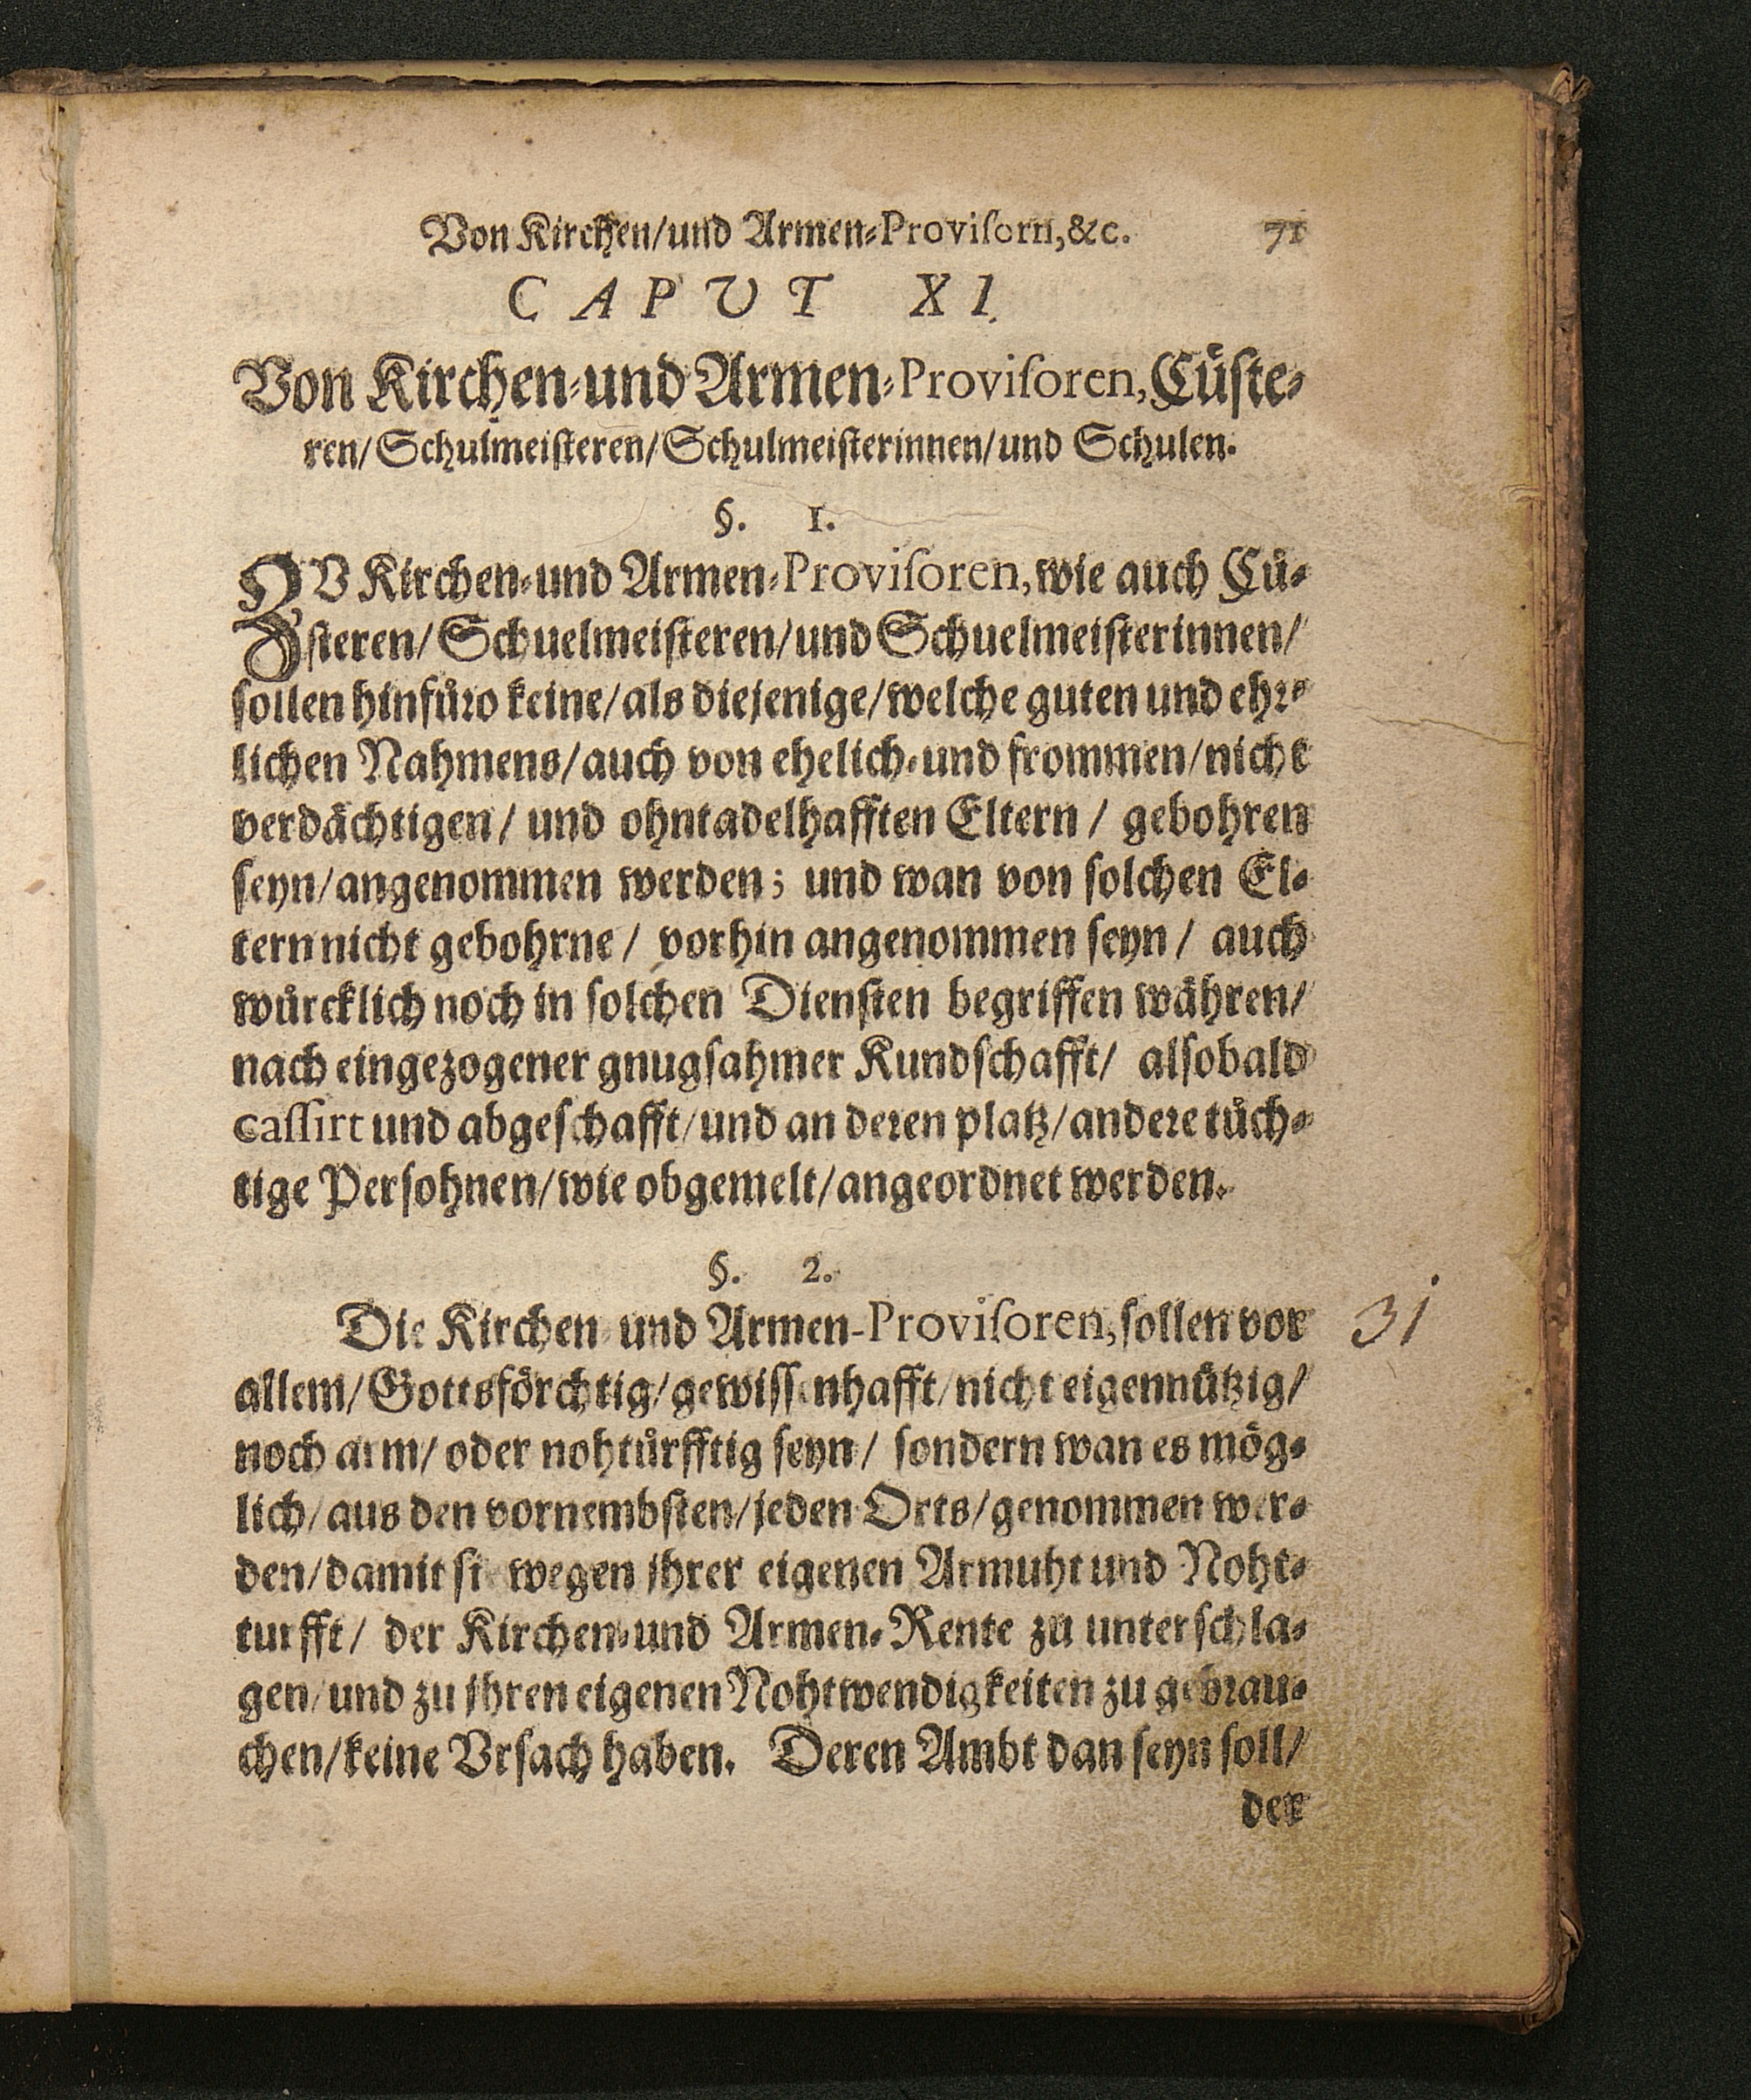 Von Kirchen/und Armen-Provisorn,&c. 71
CAPUT XI.
Von Kirchen-und Armen-Provisoren, Cüste-
ren/Schulmeisteren/Schulmeisterinnen/und Schulen.
§. 1.
ZV Kirchen-und Armen-Provisoren, wie auch Cü-
steren/Schuelmeisteren/und Schuelmeisterinnen/
sollen hinfüro keine/als diejenige/welche guten und ehr-
lichen Nahmens/auch von ehelich-und frommen/nicht
verdächtigen/ und ohntadelhafften Eltern/ gebohren
seyn/angenommen werden; und wan von solchen El-
tern nicht gebohrne/ vorhin angenommen seyn/ auch
würcklich noch in solchen Diensten begriffen währen/
nach eingezogener gnugsahmer Kundschafft/ alsobald
cassirt und abgeschafft/und an deren platz/andere tüch-
tige Persohnen/wie obgemelt/angeordnet werden.
§. 2.
Die Kirchen und Armen-Provisoren, sollen vor 31
allem/Gottsförchtig/gewissenhafft/nicht eigennützig/
noch arm/oder nohtürfftig seyn/ sondern wan es mög-
lich/aus den vornembsten/jeden Orts/genommen wer-
den/damit sie wegen ihrer eigenen Armuht und Noht-
turfft/ der Kirchen-und Armen-Rente zu unterschla-
gen/und zu ihren eigenen Nohtwendigkeiten zu gebrau-
chen/keine Vrsach haben. Deren Ambt dan seyn soll/
der